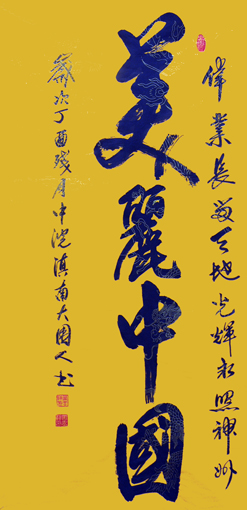 偉業長留天地光輝永照神州
美麗中國
歲次丁酉殘月中浣滇南大園人书